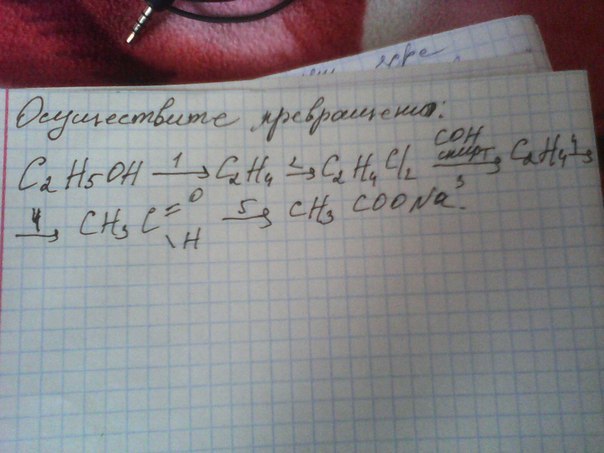 Осуществите превращения:
C₂H₅OH 1→ C₂H₄ 2→ C₂H₄Cl₂ COH спирт→ 3 C₂H₄ 4→
4→ CH₃C=O \H 5→ CH₃COONa.